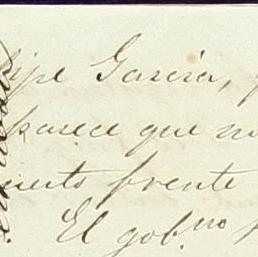 lipe Garcia,
parece que no
uerto frente
El gob.no